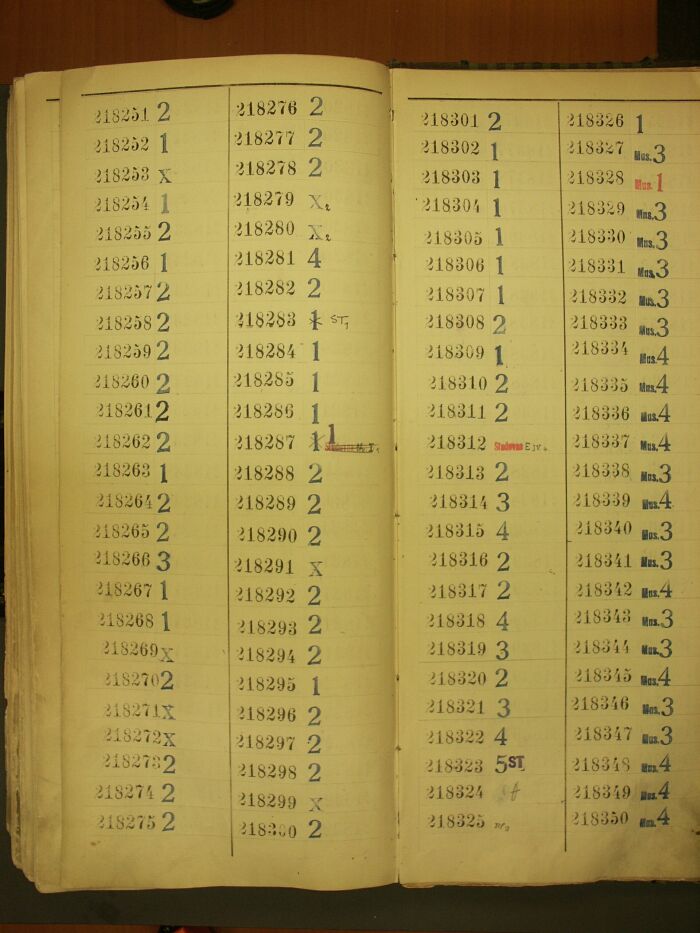 218251 2
218252 1
218253 X
218254 1
218255 2
218256 1
218257 2
218258 2
218259 2
218260 2
218261 2
218262 2
218263 1
218264 2
218265 2
218266 3
218267 1
218268 1
218269 X
218270 2
218271 X
218272 X
218273 2
218274 2
218275 2
218276 2
218277 2
218278 2
218279 X2
218280 X2
218281 4
218282 2
218283 1 ST1
218284 1
218285 1
218286 1
218287 1
218288 2
218289 2
218290 2
218291 X
218292 2
218293 2
218294 2
218295 1
218296 2
218297 2
218298 2
218299 X
218300 2
218301 2
218302 1
218303 1
218304 1
218305 1
218306 1
218307 1
218308 2
218309 1
218310 2
218311 2
218312
218313 2
218314 3
218315 4
218316 2
218317 2
218318 4
218319 3
218320 2
218321 3
218322 4
218323 5 ST
218324
218325
218326 1
218327 Mus. 3
218328 Mus. 1
218329 Mus. 3
218330 Mus. 3
218331 Mus. 3
218332 Mus. 3
218333 Mus. 3
218334 Mus. 4
218335 Mus. 4
218336 Mus. 4
218337 Mus. 4
218338 Mus. 3
218339 Mus. 4
218340 Mus. 3
218341 Mus. 3
218342 Mus. 4
218343 Mus. 3
218344 Mus. 3
218345 Mus. 4
218346 Mus. 3
218347 Mus. 3
218348 Mus. 4
218349 Mus. 4
218350 Mus. 4